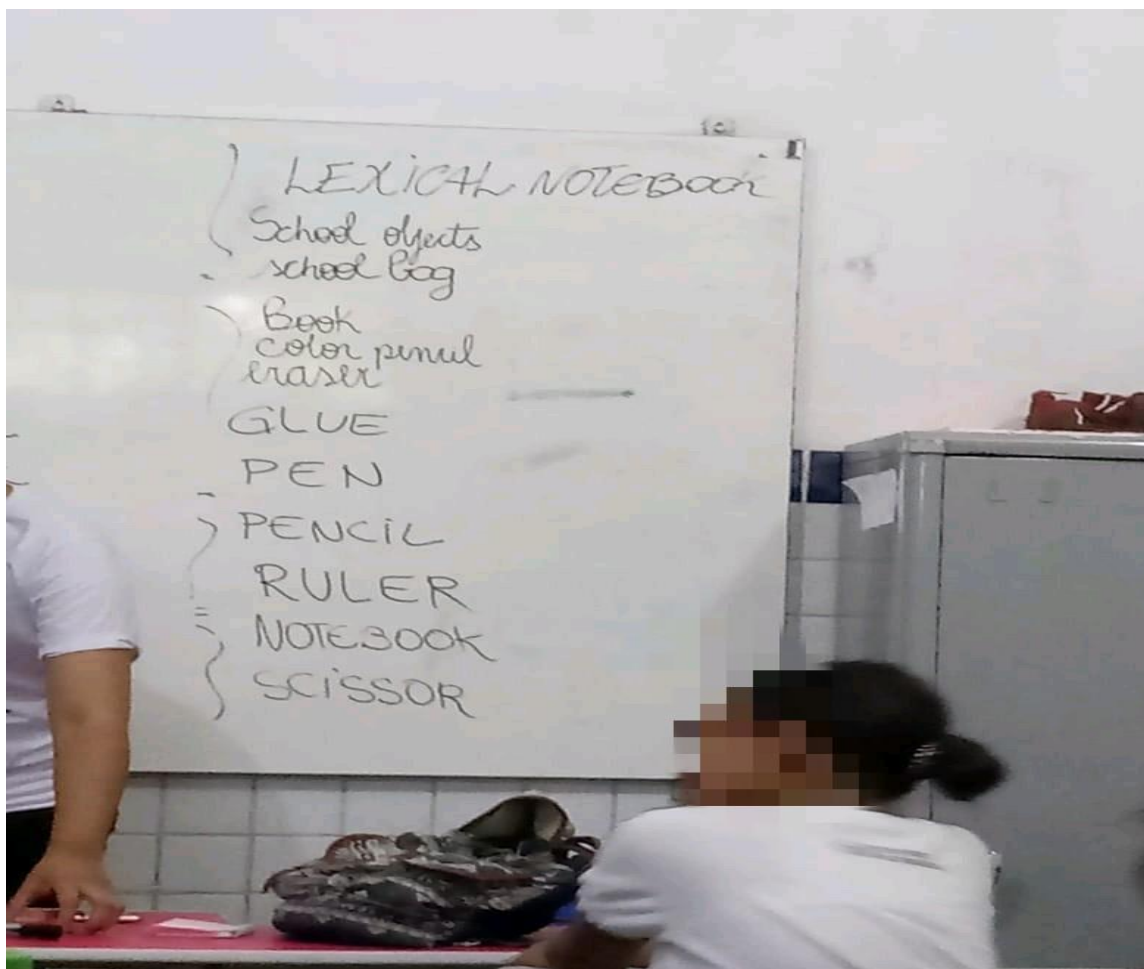 LEXiCAL NOTEBOOK
School objects
school bag
Book
color pencil
eraser
GLUE
PEN
PENCiL
RULER
NOTEBOOK
SCiSSOR